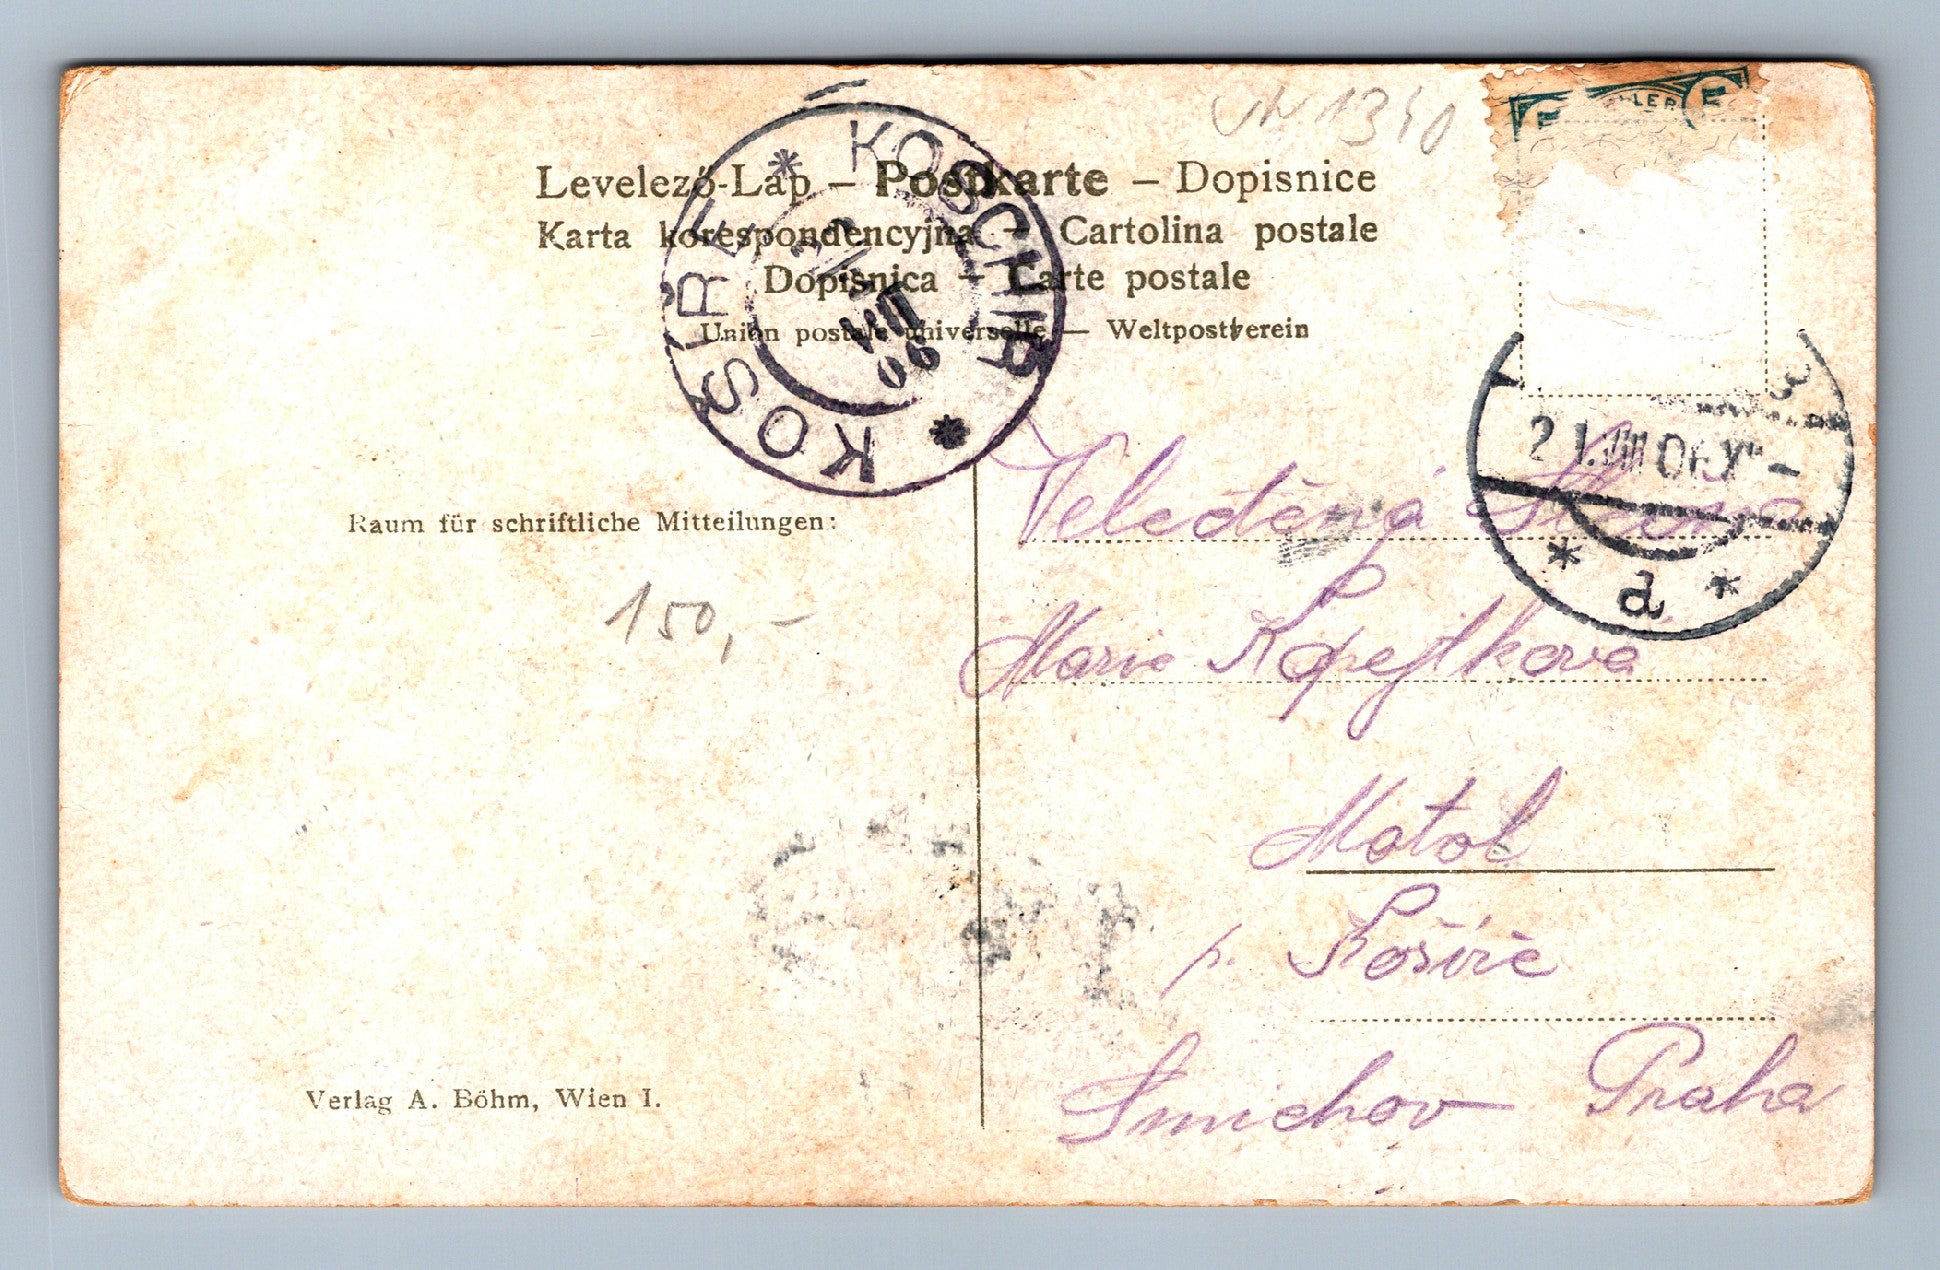 5 HELLER 5
Levelező-Lap – Postkarte – Dopisnice
Karta korespondencyjna – Cartolina postale
Dopisnica – Carte postale
Union postale universelle – Weltpostverein
* KOSCHIR *
KOŠÍŘE
VIII
06
21.VIII 06
* a *
Raum für schriftliche Mitteilungen:
150,-
Veleděná
Marie Kopejtkova
Motol
p. Košíře
Smichov Praha
Verlag A. Böhm, Wien I.